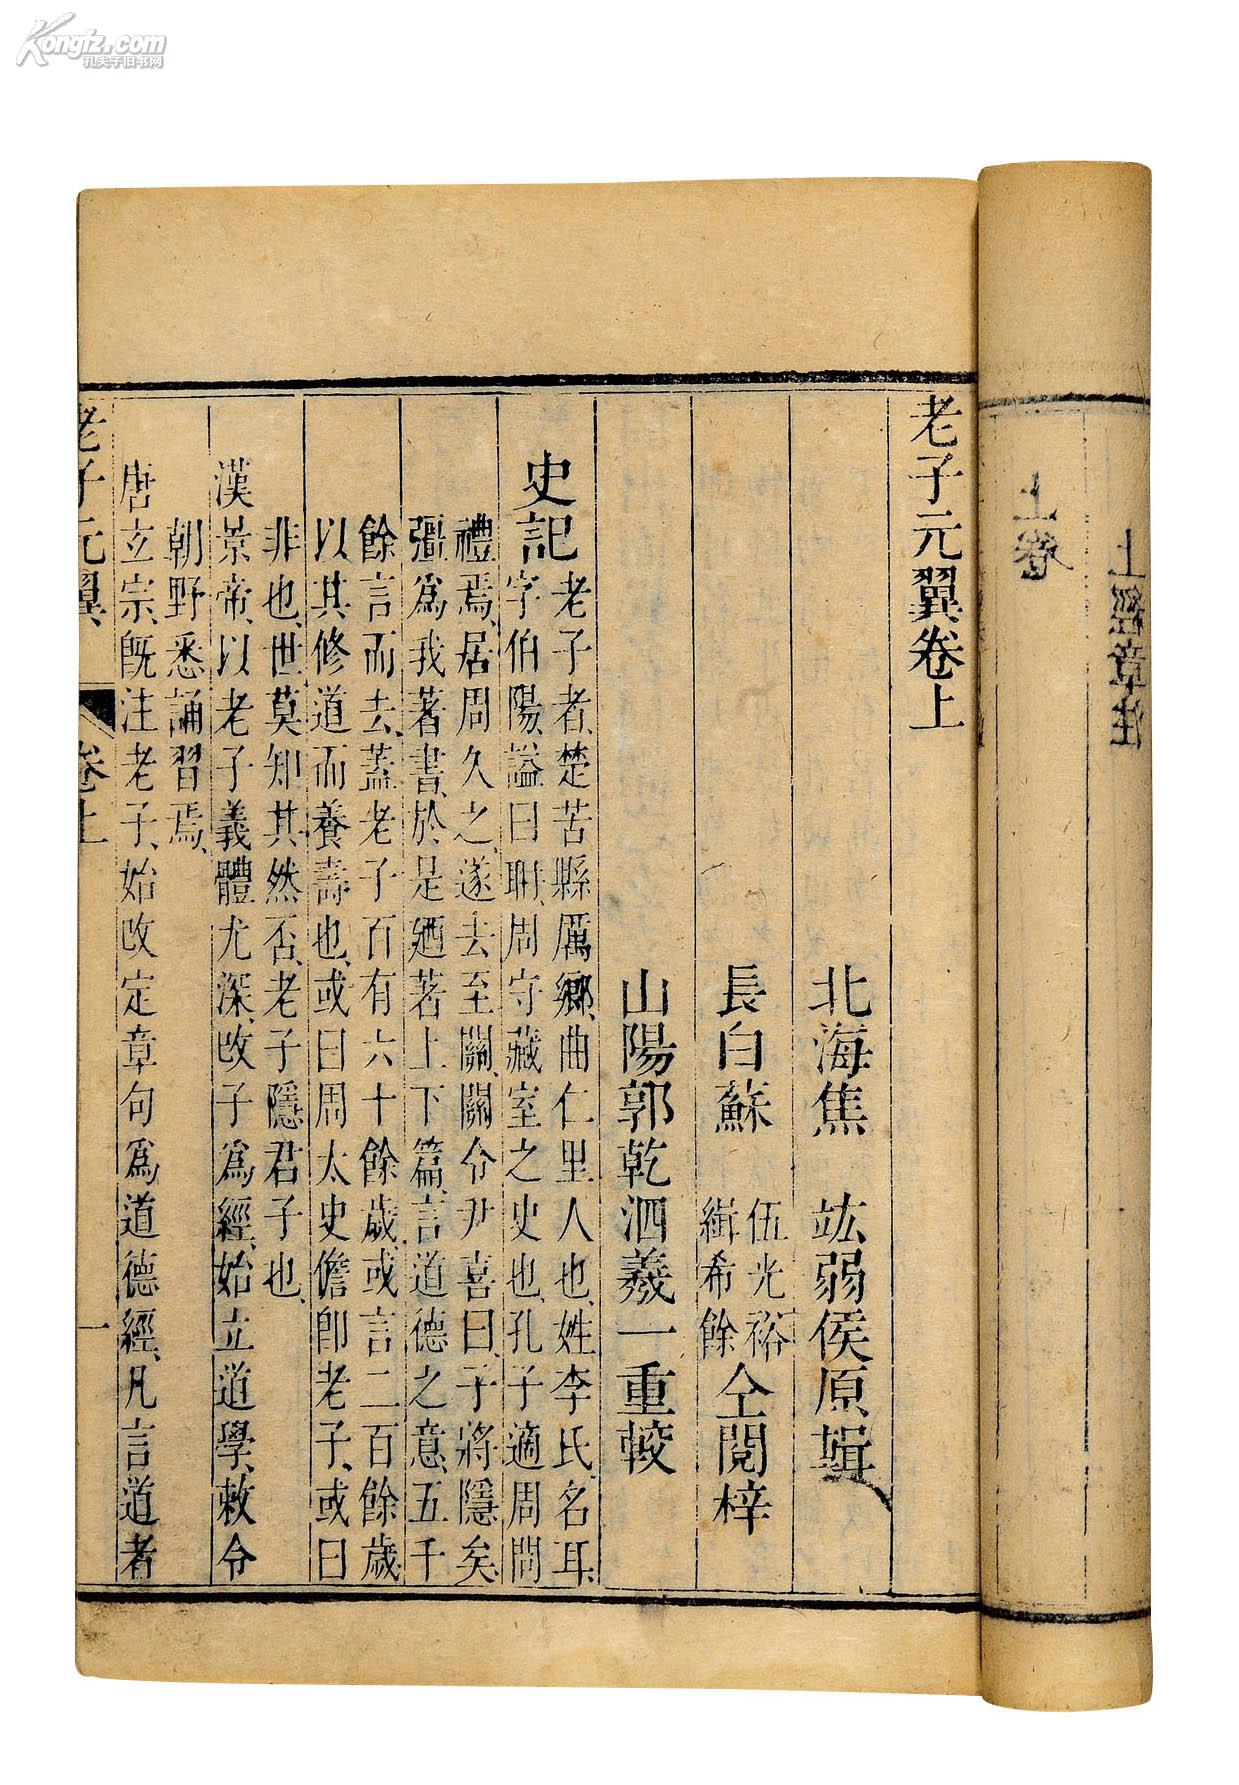 Kongfz.com
孔夫子旧书网
上經章注
上卷
老子元翼卷上
北海焦 竑弱侯原輯
長白蘇
伍光裕
緝希餘
仝閱梓
山陽郭乾泗羲一重較
史記
老子者、楚苦縣厲鄉、曲仁里人也、姓李氏、名耳、
字伯陽、謚曰聃、周守藏室之史也、孔子適周問
禮焉、居周久之、遂去至關、關令尹喜曰、子將隱矣、
彊爲我著書、於是廼著上下篇、言道德之意、五千
餘言而去、蓋老子百有六十餘歲、或言二百餘歲、
以其修道而養壽也、或曰周太史儋即老子、或曰
非也、世莫知其然否、老子隱君子也、
漢景帝、以老子義體尤深、改子爲經、始立道學、敕令
朝野悉誦習焉、
唐玄宗、旣注老子、始改定章句爲道德經、凡言道者
老子元翼
卷上
一